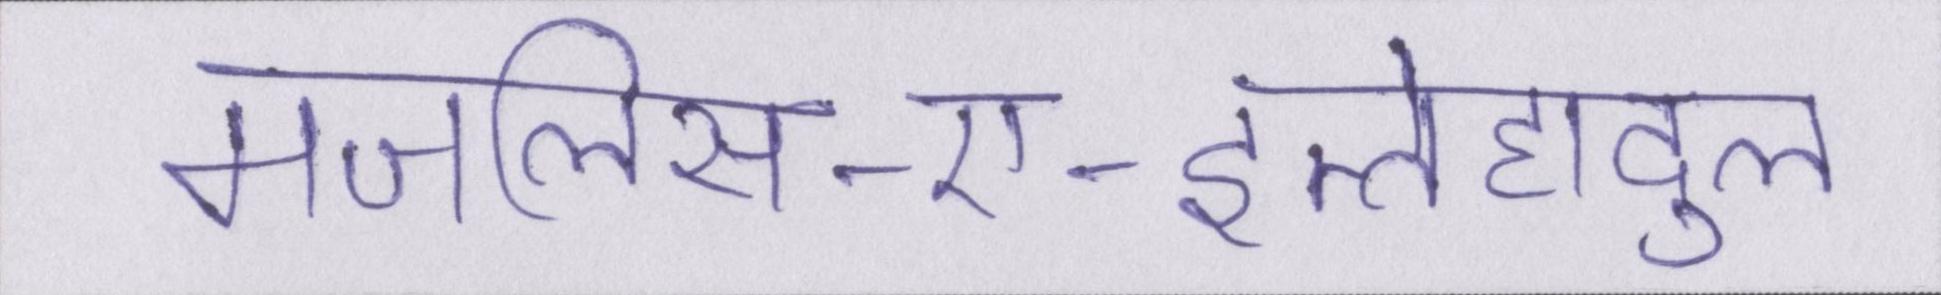 मजलिस-ए-इत्तेहादुल